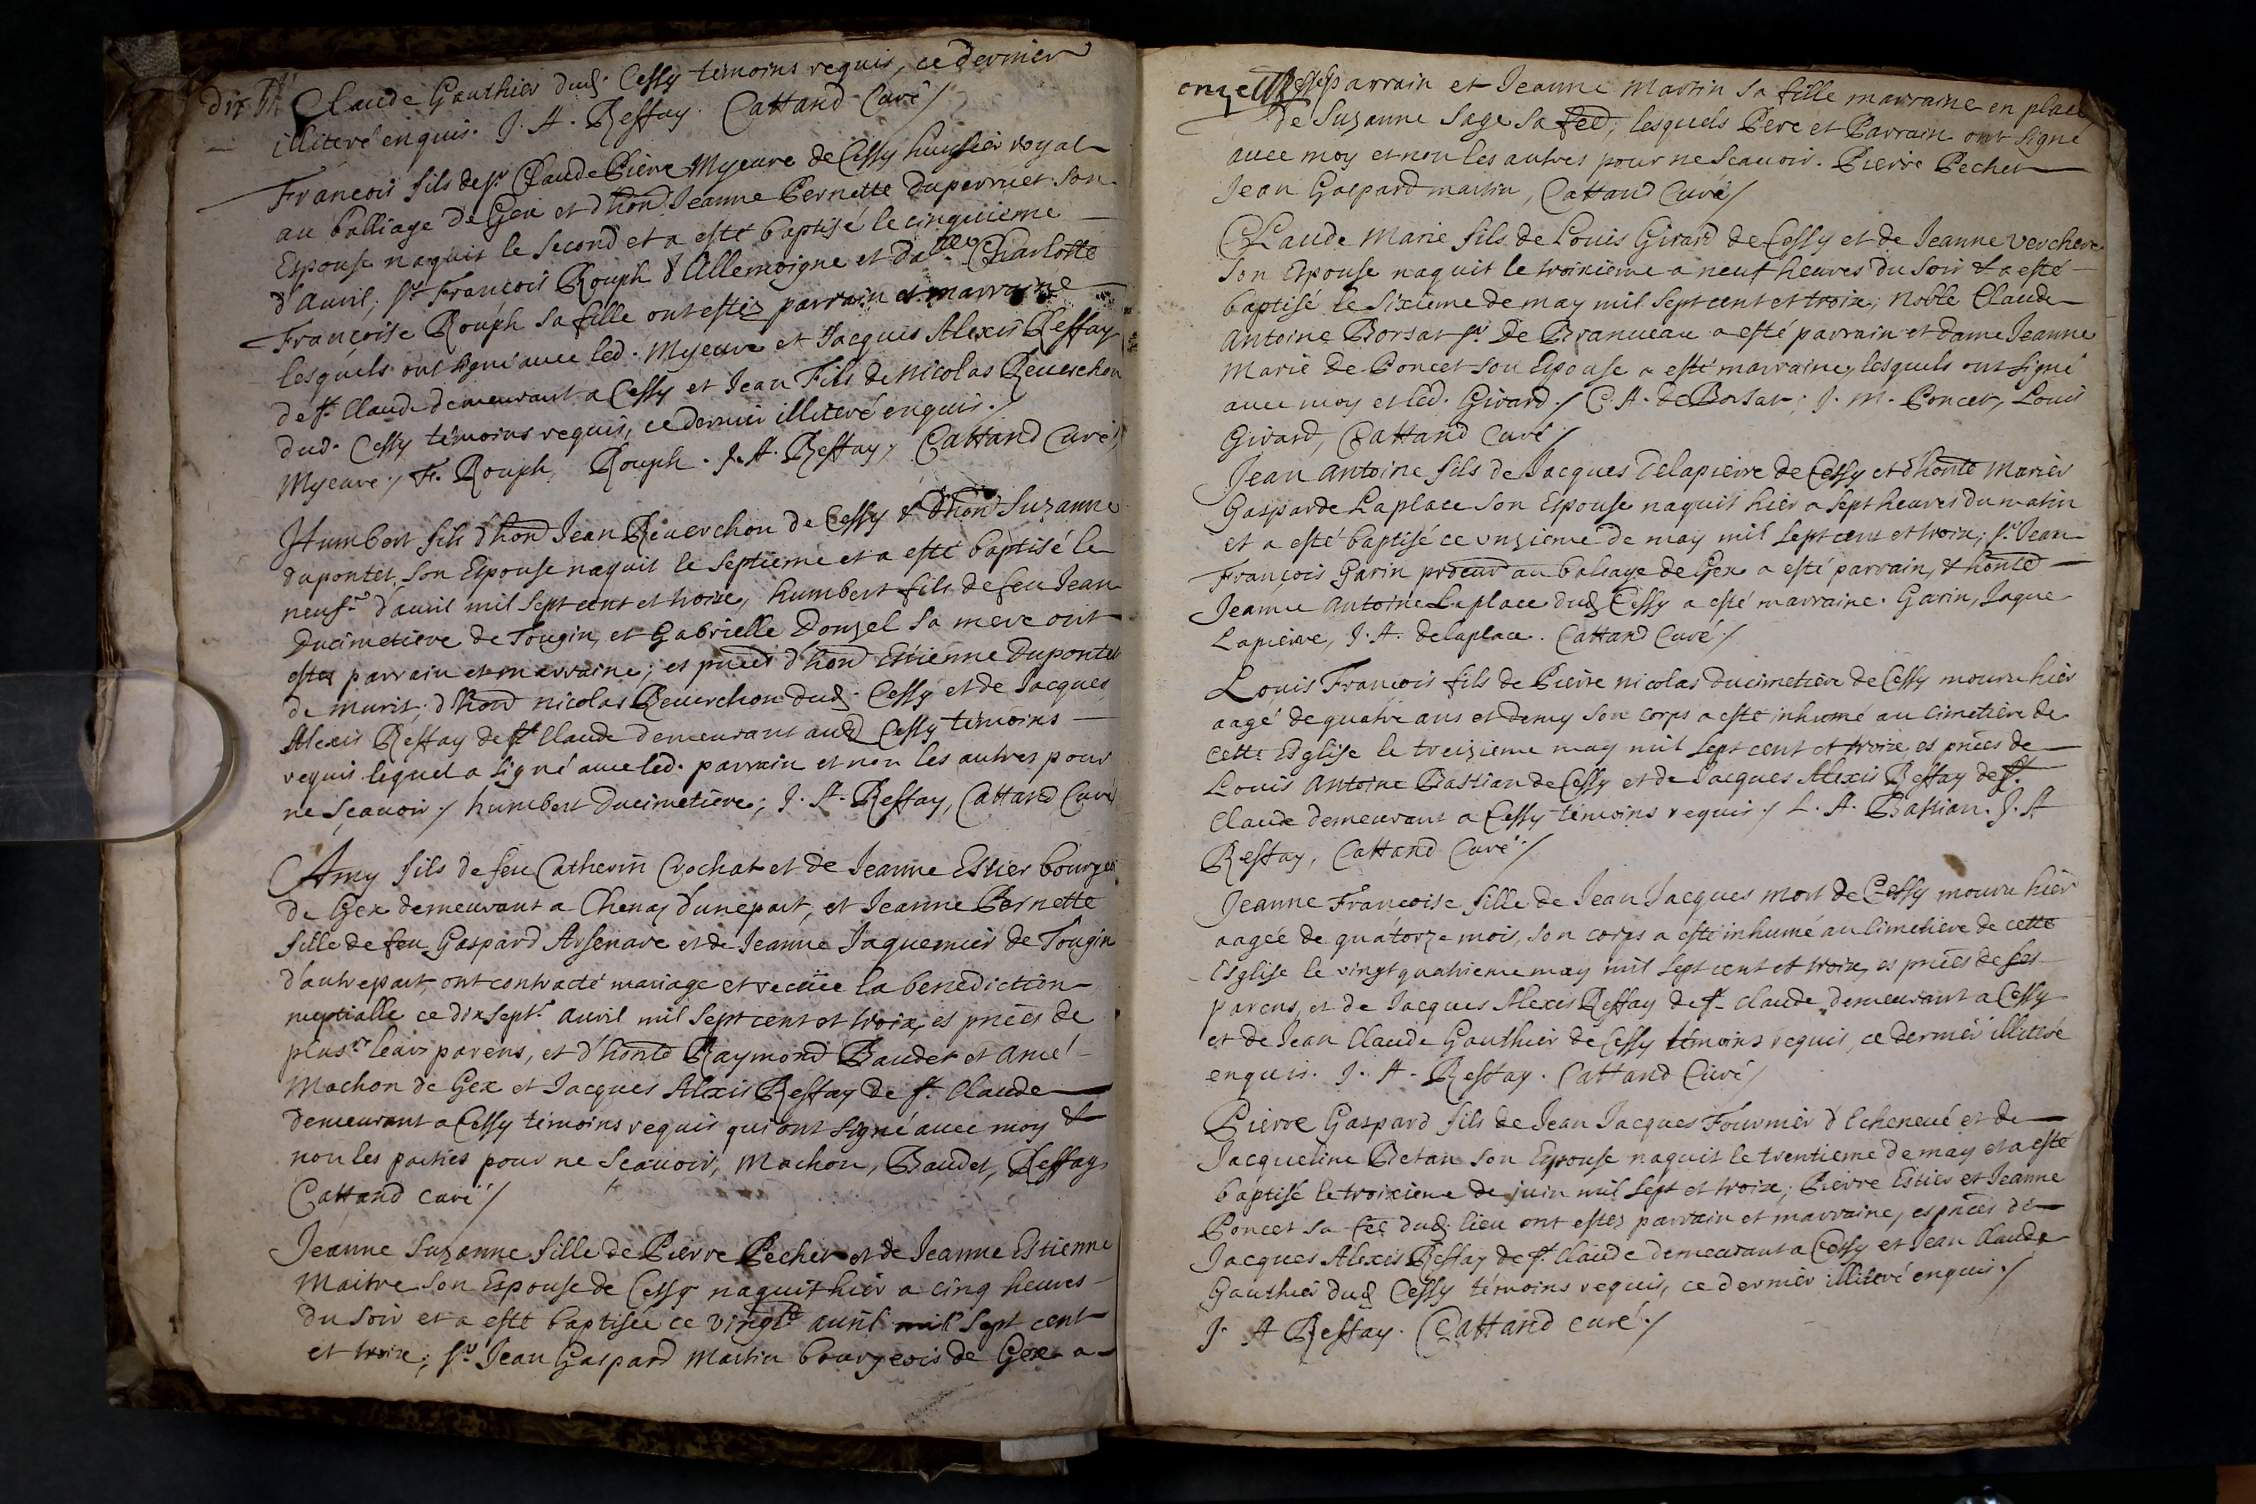 dix
Claude Gauthier dud. Cessy témoins requis, ce dernier
illiteré enquis. J. A. Reffay. Cattand Curé /
François fils de sr Claude Pierre Myeure de Cessy huyssier royal
au balliage de Gex et d'hond Jeanne Pernette Duperruet son
Espouse naquit le second et a esté baptisé le cinquieme
d'auril, sr François Rouph d'Allemoigne et dalle Charlotte
Françoise Rouph sa fille ont estez parrain et marraine
lesquels ont signé auec led. Myeure et Jacques Alexis Reffay
de st Claude demeurant a Cessy et Jean Fils de Nicolas Reuerchon
dud. Cessy témoins requis, ce dernier illiteré enquis. /
Myeure / F. Rouph, Rouph. J. A. Reffay, Cattand Curé /
Humbert fils d'hond Jean Reuerchon de Cessy & d'hond Suzanne
dupontet son Espouse naquit le septieme et a esté baptisé le
neufe d'auril mil sept cent et troize, humbert fils de feu Jean
Ducimetiere de Tougin, et Gabrielle Donzel sa mere ont
estez parrain et marraine; es pnces d'hond Estienne Dupontet
de muris, d'hond nicolas Reuerchon dud. Cessy et de Jacques
Alexis Reffay de st Claude demeurant aud Cessy témoins
requis lequel a signé auec led. parrain et non les autres pour
ne sçauoir / humbert Ducimetiere; J. A. Reffay, Cattand Curé
Amy fils de feu Catherin Crochat et de Jeanne Estier bourgeois
de Gex demeurant a Chenaz d'une part, et Jeanne Pernette
fille de feu Gaspard Arsenare et de Jeanne Jaquemier de Tougin
d'autre part, ont contracté mariage et receüe la benediction
nuptialle ce dixsept.e auril mil sept cent et troize, es pnces de
plusrs leurs parens, et d'honts Raymond Baudet et Amé
Machon de Gex et Jacques Alexis Reffay de st. Claude
demeurant a Cessy témoins requis qui ont signé auec moy &
non les parties pour ne sçauoir; Machon, Baudet, Reffay,
Cattand curé /
Jeanne Suzanne fille de Pierre Pecher et de Jeanne Estienne
Maitre son Espouse de Cessy naquit hier a cinq heures
du soir et a esté baptisée ce vingte auril mil sept cent
et troize; sr Jean Gaspard Martin bourgeois de Gex a
onze
esté parrain et Jeanne Martin sa fille marraine en place
de Suzanne Sage sa fed; lesquels Pere et Parrain ont signé
auec moy et non les autres pour ne sçauoir. Pierre Pecher
Jean Gaspard martin, Cattand Curé /
Claude Marie fils de Louis Girard de Cessy et de Jeanne Verchere
son Espouse naquit le troixieme a neuf heures du soir & a esté
baptisé le sixieme de may mil sept cent et troize; Noble Claude
Antoine Borsat sr. De Branueau a esté parrain et dame Jeanne
Marie de Poncet son Espouse a esté marraine, lesquels ont signé
auec moy et led. Girard / C. A. de Borsat; J. M. Poncet, Louis
Girard, Cattand Curé /
Jean Antoine fils de Jacques Delapierre de Cessy et d'honte Marie
Gasparde Laplace son Espouse naquit hier a sept heures du matin
et a esté baptisé ce unzieme de may mil sept cent et troize; sr. Jean
François Garin procur au baliage de Gex a esté parrain, & honte
Jeanne Antoine Laplace dud. Cessy a esté marraine. Garin, Jaque
Lapierre, J. A. delaplace. Cattand Curé /
Louis François fils de Pierre nicolas ducimetiere de Cessy mouru hier
aagé de quatre ans et demy son corps a esté inhumé au cimetiere de
cette Esglise le treizieme may mil sept cent et troize es pnces de
Louis Antoine Bastian de Cessy et de Jacques Alexis Reffay de st.
Claude demeurant a Cessy témoins requis / L. A. Bastian. J. A
Reffay, Cattand Curé /
Jeanne Françoise fille de Jean Jacques Mort de Cessy mouru hier
aagée de quatorze mois, son corps a esté inhumé au cimetiere de cette
Esglise le vingt quatrieme may mil sept cent et troize, es pnces de ses
parens, et de Jacques Alexis Reffay de st. claude demeurant a Cessy
et de Jean Claude Gauthier de Cessy témoins requis, ce dernier illiteré
enquis. J. A. Reffay. Cattand Curé /
Pierre Gaspard fils de Jean Jacques Fournier d'Echeneué et de
Jacqueline Betan son Espouse naquit le trentieme de may et a esté
baptisé le troixieme de juin mil sept et troize; Pierre Estier et Jeanne
Poncet sa fee dud. lieu ont estez parrain et marraine, es pnces de
Jacques Alexis Reffay de st. Claude demeurant a Cessy et Jean Claude
Gauthier dud. Cessy témoins requis, ce dernier illiteré enquis. /
J. A Reffay. Cattand curé. /